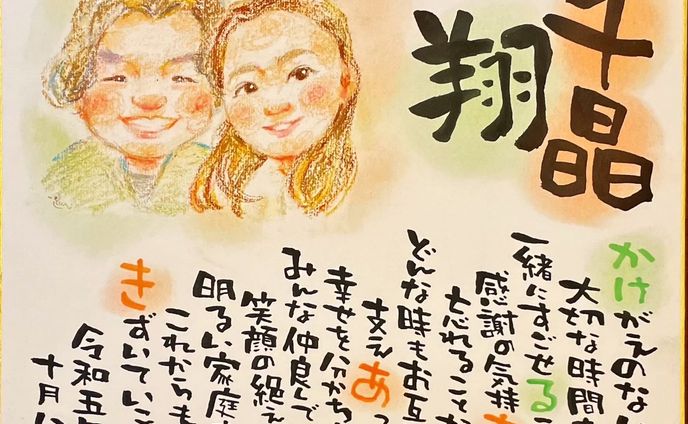 千晶
翔
かけがえのな
大切な時間
一緒にすごせるこ
感謝の気持
忘れること
どんな時もお互
支えあっ
幸せを分かち
みんな仲良しで
笑顔の絶え
明るい家庭
これからも
きずいていこ
令和五
十月